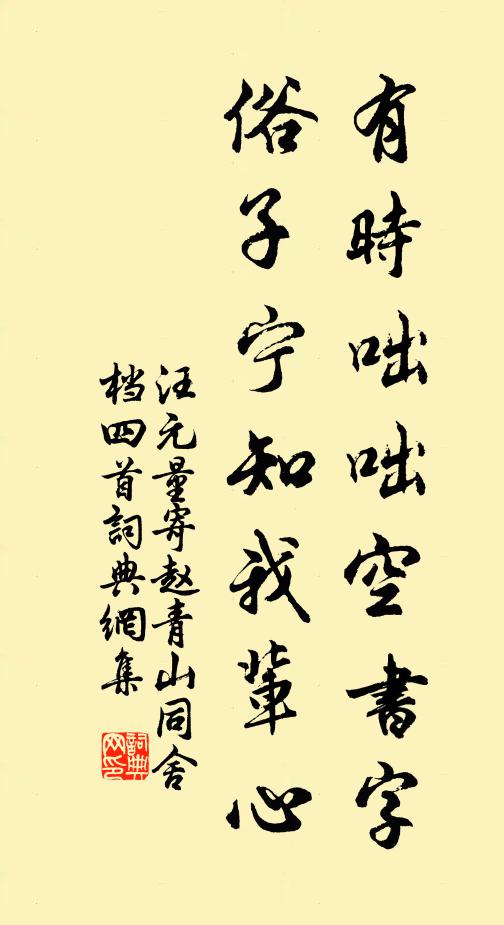 有時咄咄空書字
俗子宁知我輩心
汪元量寄赵青山同舍
档四首詞典網集
詞典
网印